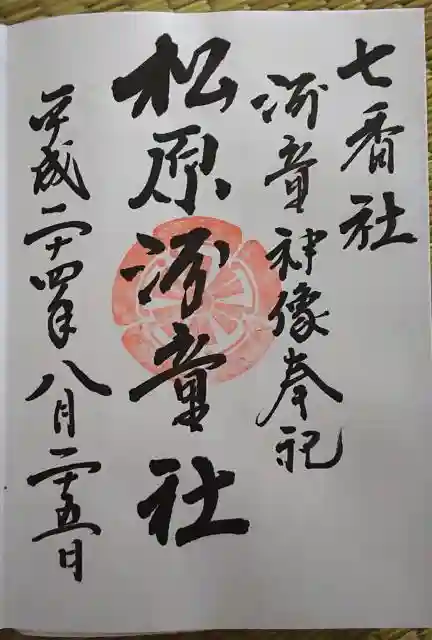 七香社
河童神像奉祀
松原河童社
平成二十四年八月二十五日